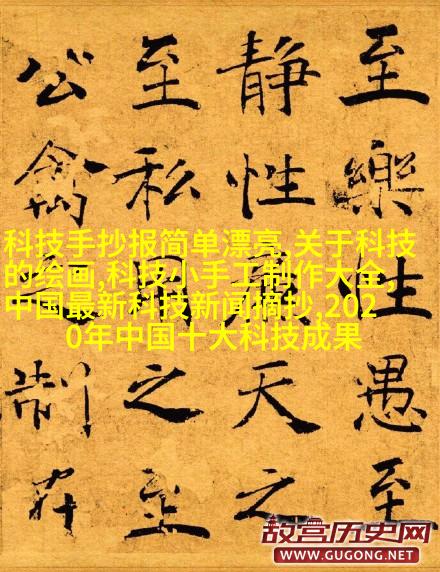 至樂性愚至
静性廉天之
至私用之至
公禽之制在
科技手抄报简单漂亮,关于科技
的绘画,科技小手工制作大全,
中国最新科技新闻摘抄,202
0年中国十大科技成果
故宫历史网
WWW.GUGONG.NET